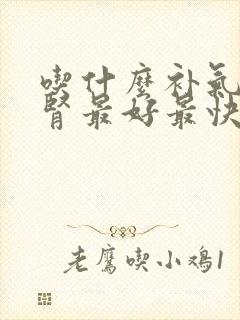 喫什麼补氣
肾最好最快
老鷹喫小鸡1